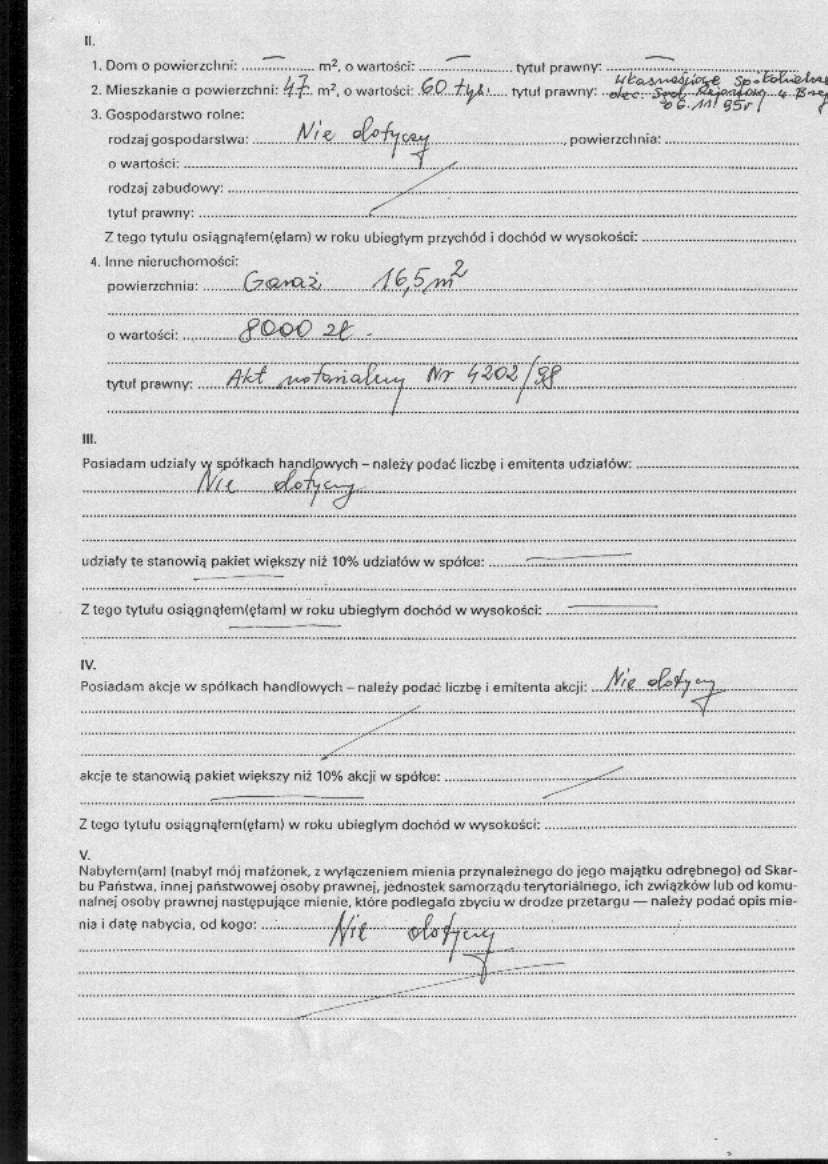 II.
1. Dom o powierzchni: .................. m², o wartości: ........................ tytuł prawny: ..................
2. Mieszkanie o powierzchni: 47 m², o wartości: 60 tyś. tytuł prawny: własnościowe spółdzielcze
dec. Sąd. Rejonowy
06.11.95r
3. Gospodarstwo rolne:
rodzaj gospodarstwa: Nie dotyczy, powierzchnia: ..................
o wartości: ..................
rodzaj zabudowy: ..................
tytuł prawny: ..................
Z tego tytułu osiągnąłem(ęłam) w roku ubiegłym przychód i dochód w wysokości: ..................
4. Inne nieruchomości:
powierzchnia: Garaż 16,5 m²
o wartości: 8000 zł -
tytuł prawny: Akt notarialny Nr 4202/98
III.
Posiadam udziały w spółkach handlowych – należy podać liczbę i emitenta udziałów: ..................
Nie dotyczy
udziały te stanowią pakiet większy niż 10% udziałów w spółce: ..................
Z tego tytułu osiągnąłem(ęłam) w roku ubiegłym dochód w wysokości: ..................
IV.
Posiadam akcje w spółkach handlowych – należy podać liczbę i emitenta akcji: Nie dotyczy
akcje te stanowią pakiet większy niż 10% akcji w spółce: ..................
Z tego tytułu osiągnąłem(ęłam) w roku ubiegłym dochód w wysokości: ..................
V.
Nabyłem(am) (nabył mój małżonek, z wyłączeniem mienia przynależnego do jego majątku odrębnego) od Skar-
bu Państwa, innej państwowej osoby prawnej, jednostek samorządu terytorialnego, ich związków lub od komu-
nalnej osoby prawnej następujące mienie, które podlegało zbyciu w drodze przetargu — należy podać opis mie-
nia i datę nabycia, od kogo: ..................
Nie dotyczy